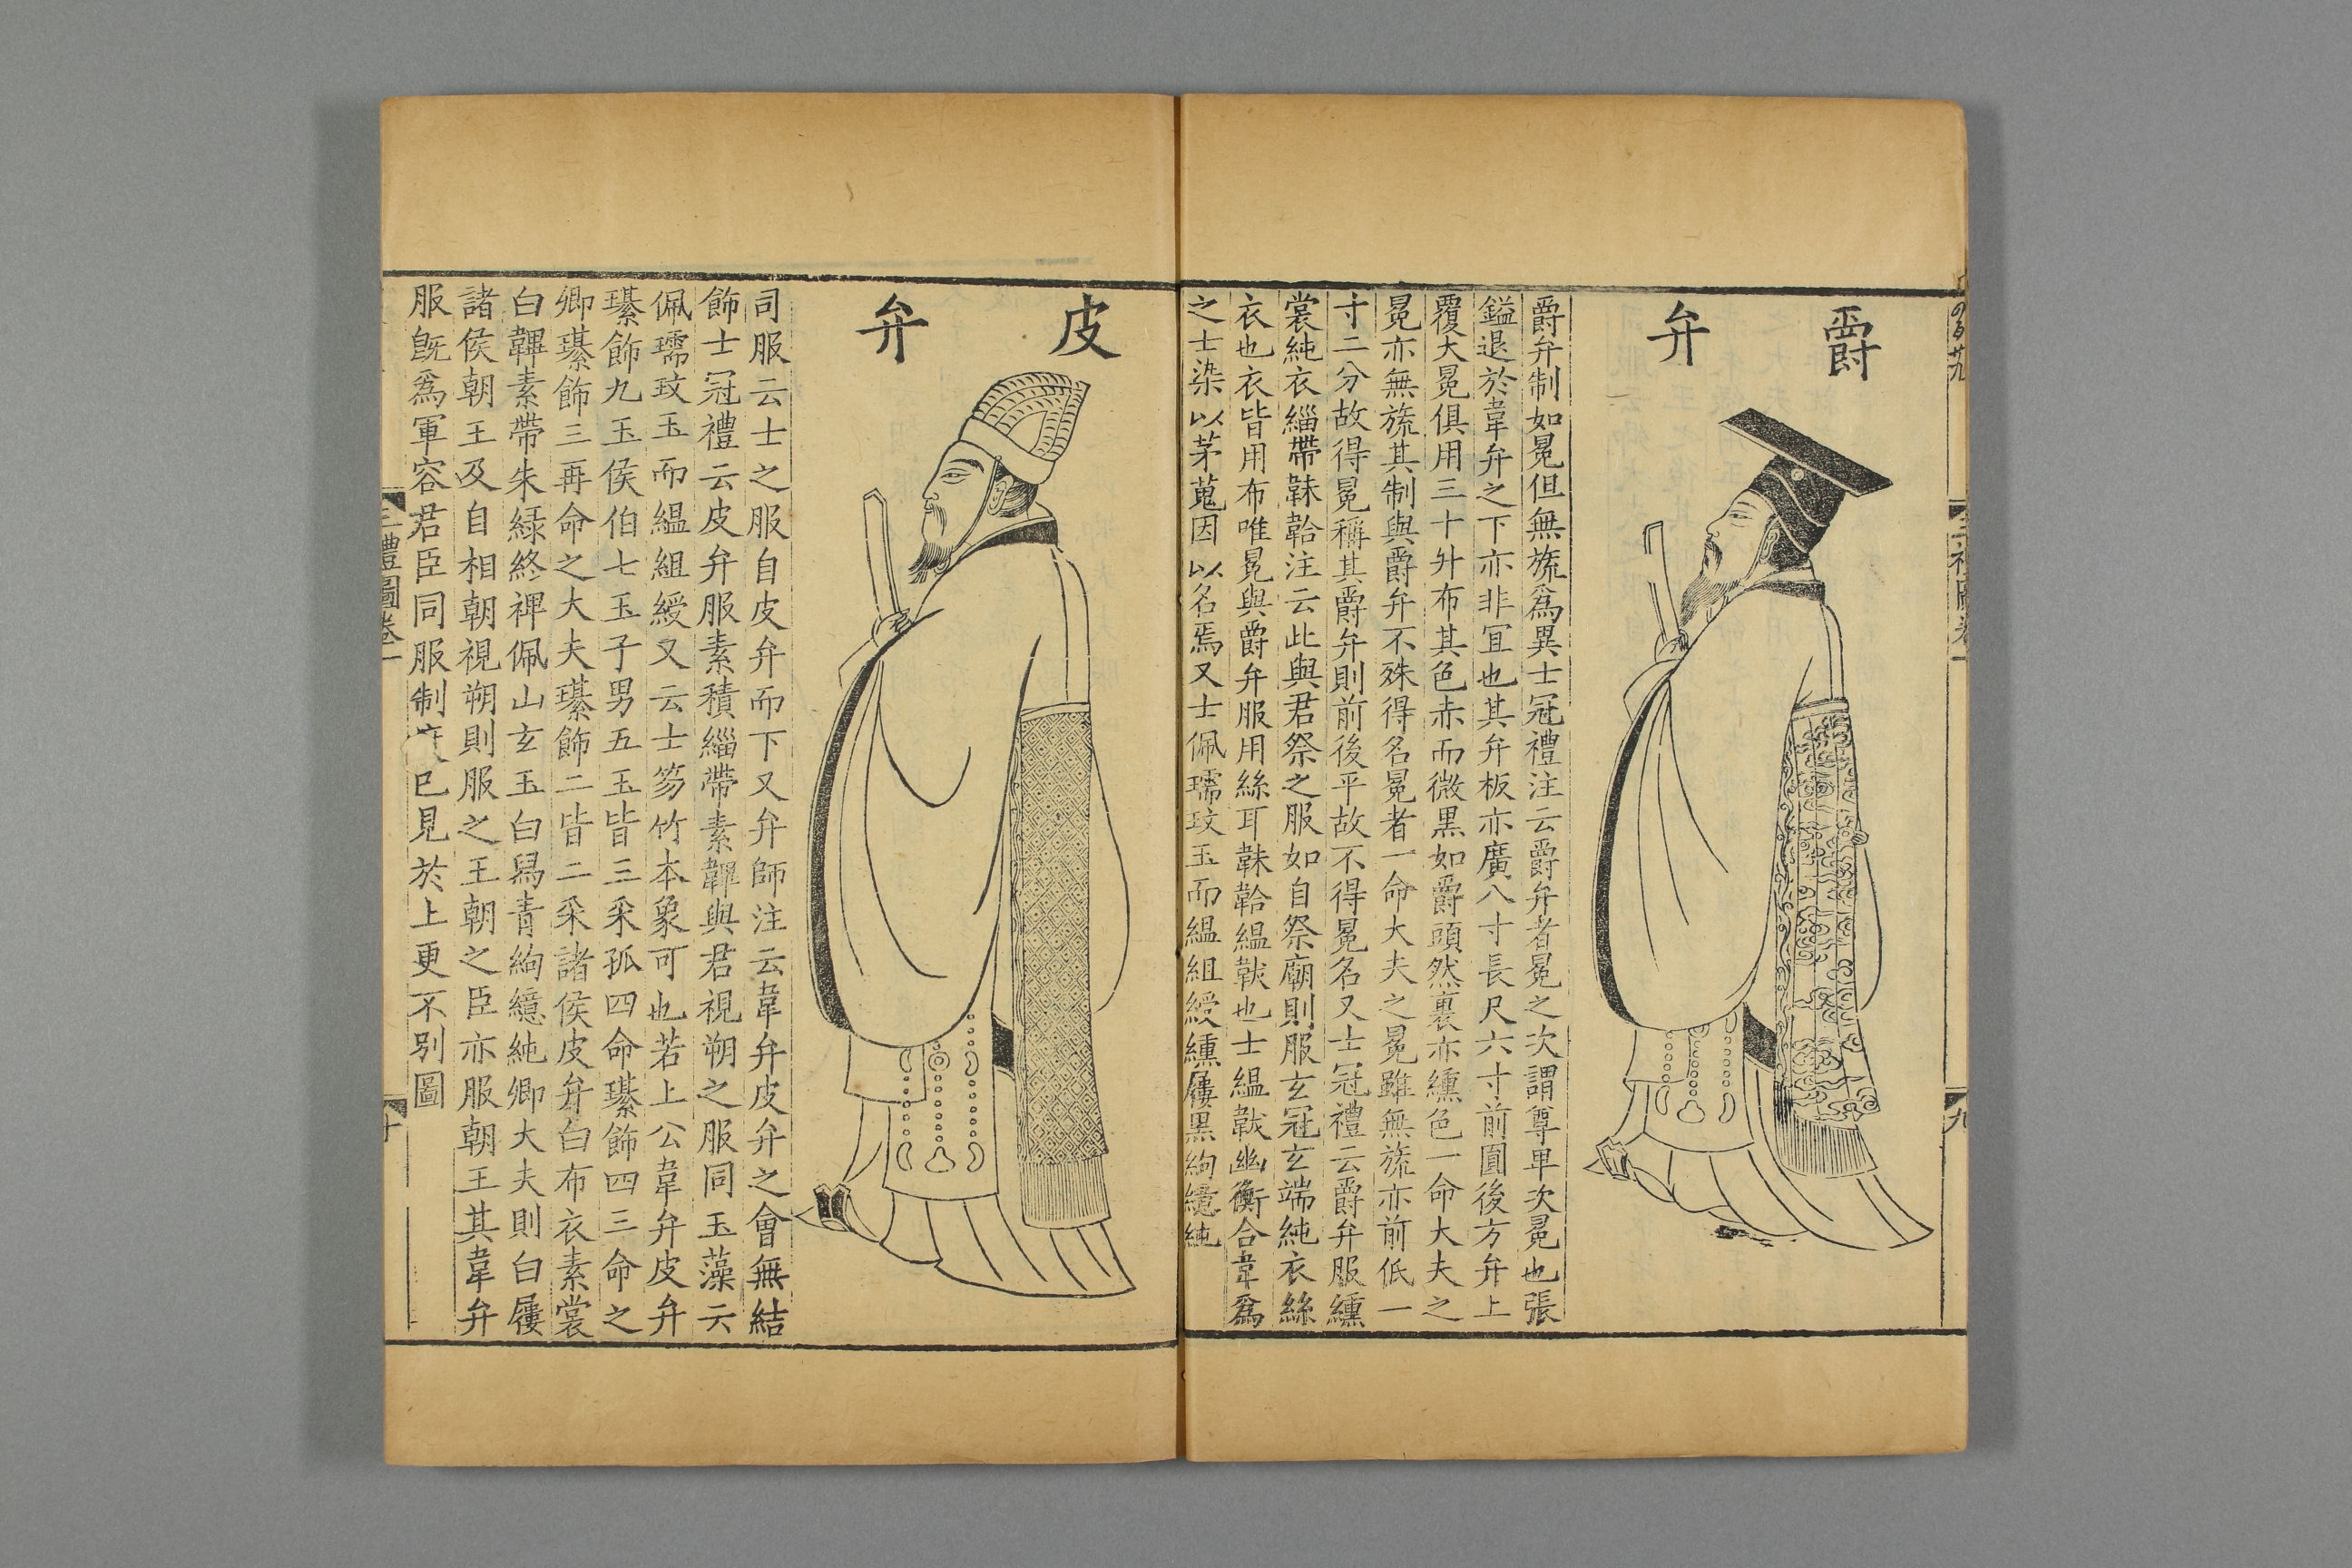 爵弁
爵弁制如冕但無旒爲異士冠禮注云爵弁者冕之次謂尊卑次冕也張
鎰退於韋弁之下亦非冝也其弁板亦廣八寸長尺六寸前圓後方弁上
覆大冕俱用三十升布其色赤而微黒如爵頭然裏亦纁色一命大夫之
冕亦無旒其制與爵弁不殊得名冕者一命大夫之冕雖無旒亦前低一
寸二分故得冕稱其爵弁則前後平故不得冕名又士冠禮云爵弁服纁
裳純衣緇帶韎韐注云此與君祭之服如自祭廟則服玄冠玄端純衣絲
衣也衣皆用布唯冕與爵弁服用絲耳韎韐緼韍也士緼韍幽衡合韋爲
之士染以茅蒐因以名焉又士佩瓀玟玉而緼組綬纁屨黒絇繶純
九
皮弁
司服云士之服自皮弁而下又弁師注云韋弁皮弁之會無結
飾士冠禮云皮弁服素積緇帶素韠與君視朔之服同玉藻云
佩瓀玟玉而緼組綬又云士笏竹本象可也若上公韋弁皮弁
璂飾九玉侯伯七玉子男五玉皆三采孤四命璂飾四三命之
卿璂飾三再命之大夫璂飾二皆二采諸侯皮弁白布衣素裳
白韠素帶朱綠終裨佩山玄玉白舄青絇繶純卿大夫則白屨
諸侯朝王及自相朝視朔則服之王朝之臣亦服朝王其韋弁
服旣爲軍容君臣同服制已見於上更不别圖
三禮圖卷一
十